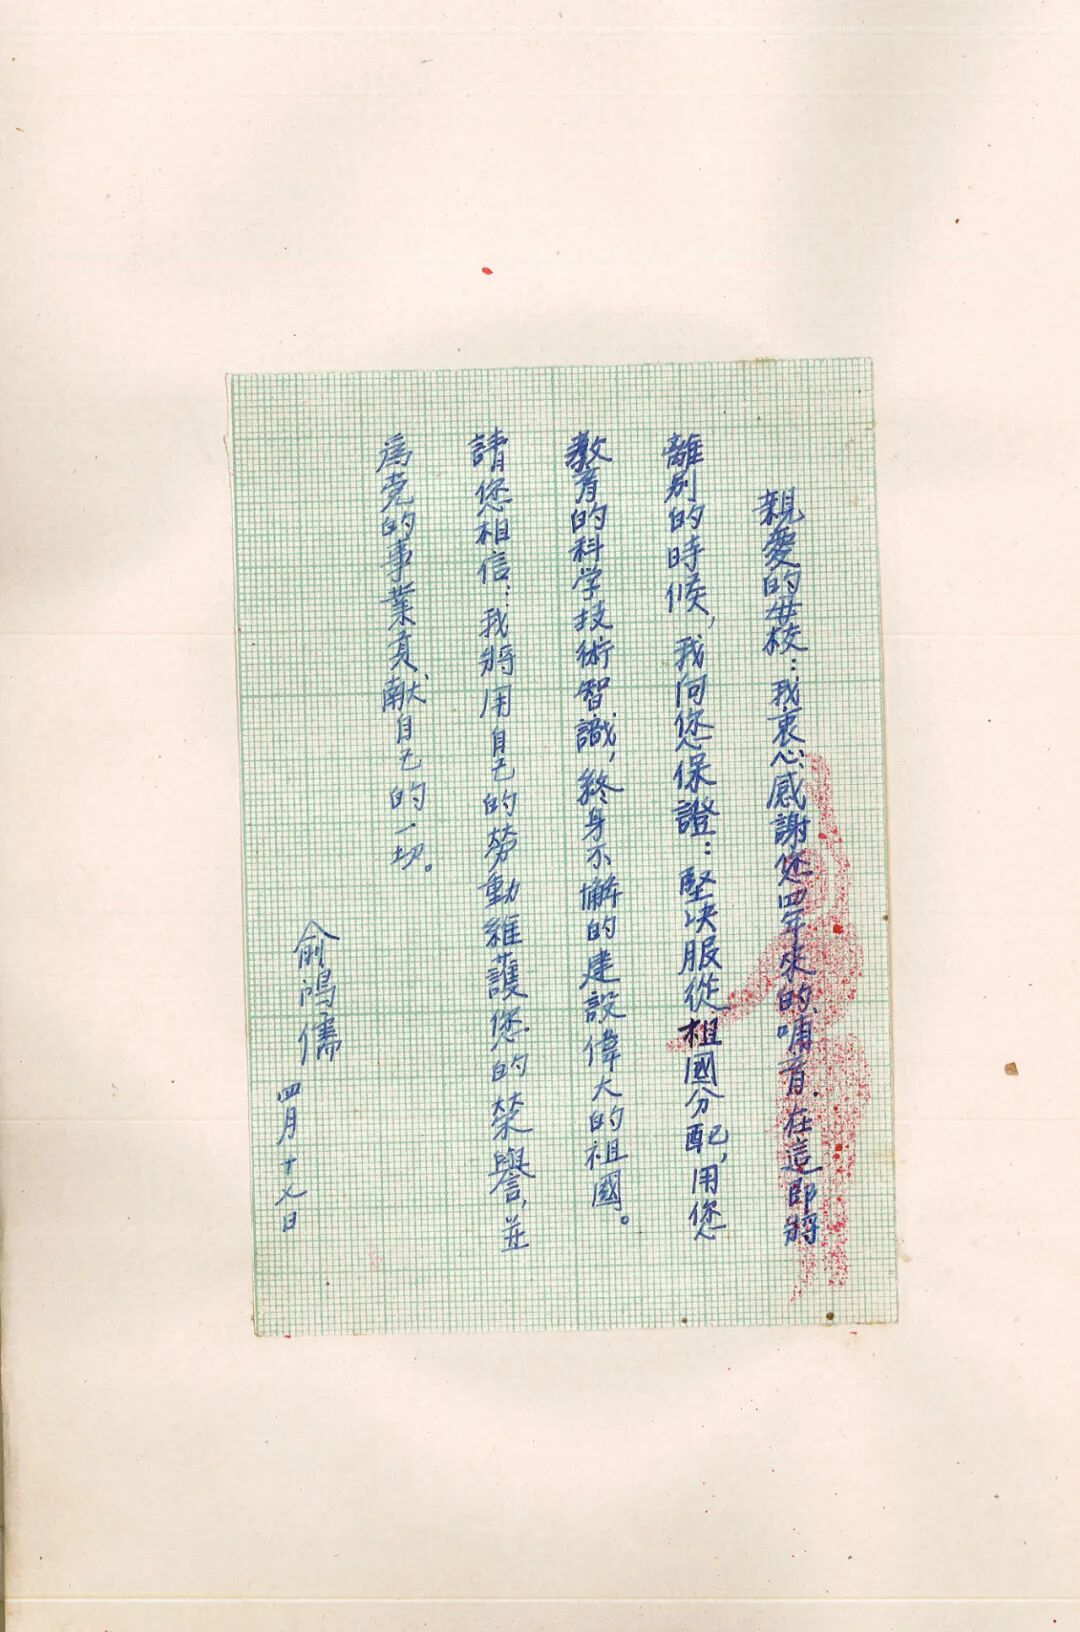 親愛的母校：我衷心感謝您四年來的哺育．在這即將
離别的時候，我向您保證：堅决服從祖國分配，用您
教育的科学技術智識，終身不懈的建設偉大的祖國。
請您相信：我將用自己的勞動維護您的榮譽，並
為党的事業貢献自己的一切。
俞鴻儒
四月十七日